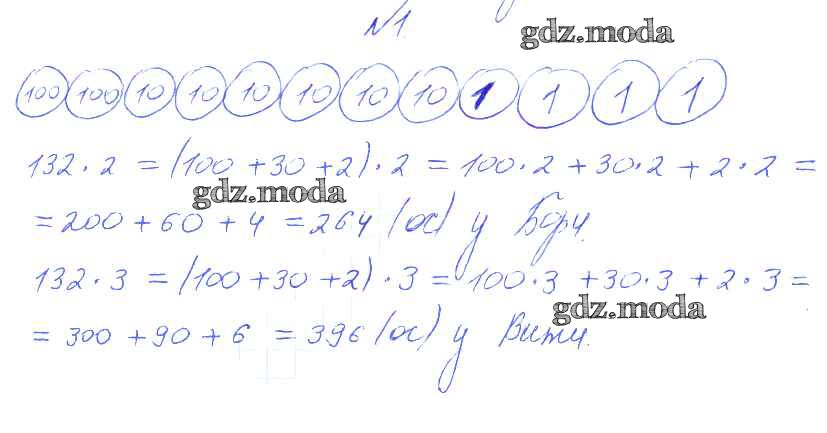 №1.
gdz.moda
100 100 10 10 10 10 10 10 1 1 1 1
132 · 2 = (100 + 30 + 2) · 2 = 100 · 2 + 30 · 2 + 2 · 2 =
gdz.moda
= 200 + 60 + 4 = 264 (ос) у
132 · 3 = (100 + 30 + 2) · 3 = 100 · 3 + 30 · 3 + 2 · 3 =
gdz.moda
= 300 + 90 + 6 = 396 (ос) у Вити.